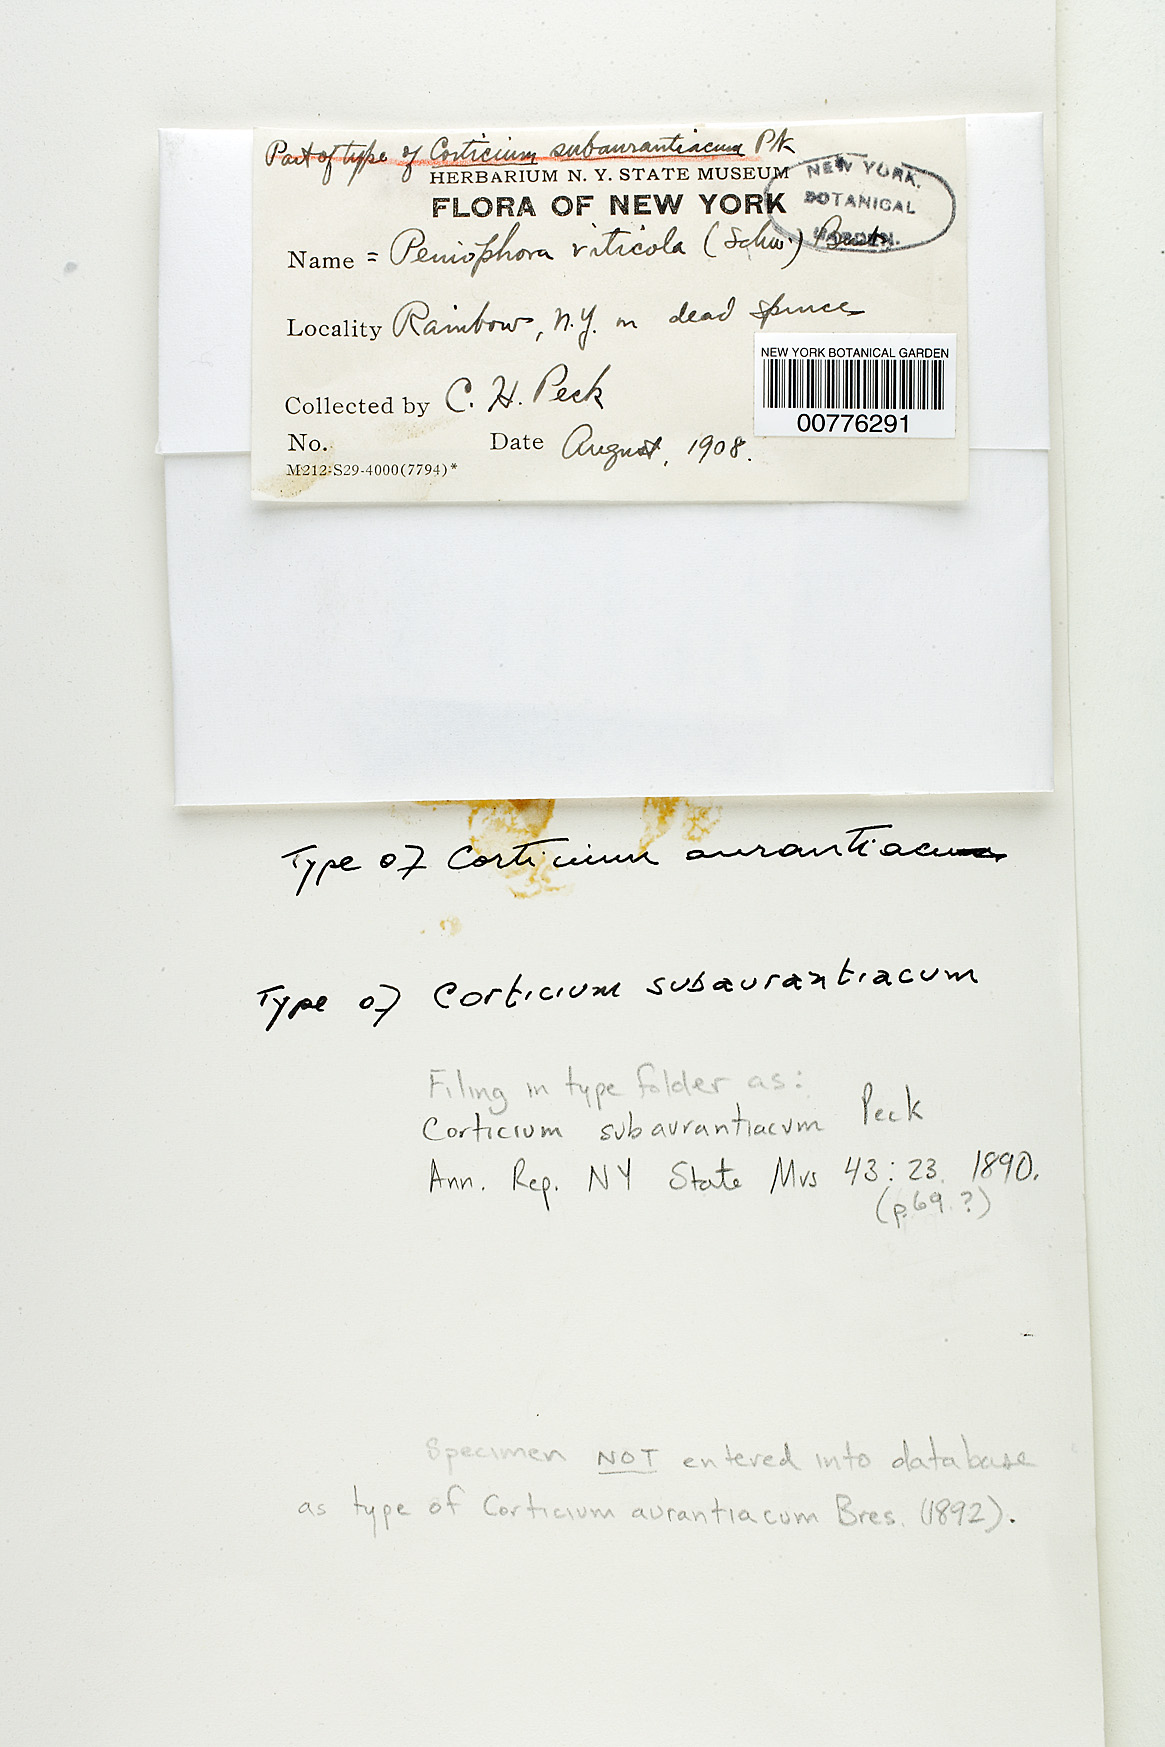 Part of type of Corticium subaurantiacum Pk
HERBARIUM N. Y. STATE MUSEUM
FLORA OF NEW YORK
NEW YORK
BOTANICAL
GARDEN.
Name = Peniophora viticola (Schw.)
Locality Rainbow, N.Y. on dead spruce
NEW YORK BOTANICAL GARDEN
00776291
Collected by C. H. Peck
No. Date August, 1908.
M212-S29-4000(7794)*
Type of Corticium aurantiacum
Type of Corticium subaurantiacum
Filing in type folder as:
Corticium subaurantiacum Peck
Ann. Rep. NY State Mus 43: 23. 1890.
(p.69.?)
Specimen NOT entered into database
as type of Corticium aurantiacum Bres. (1892).